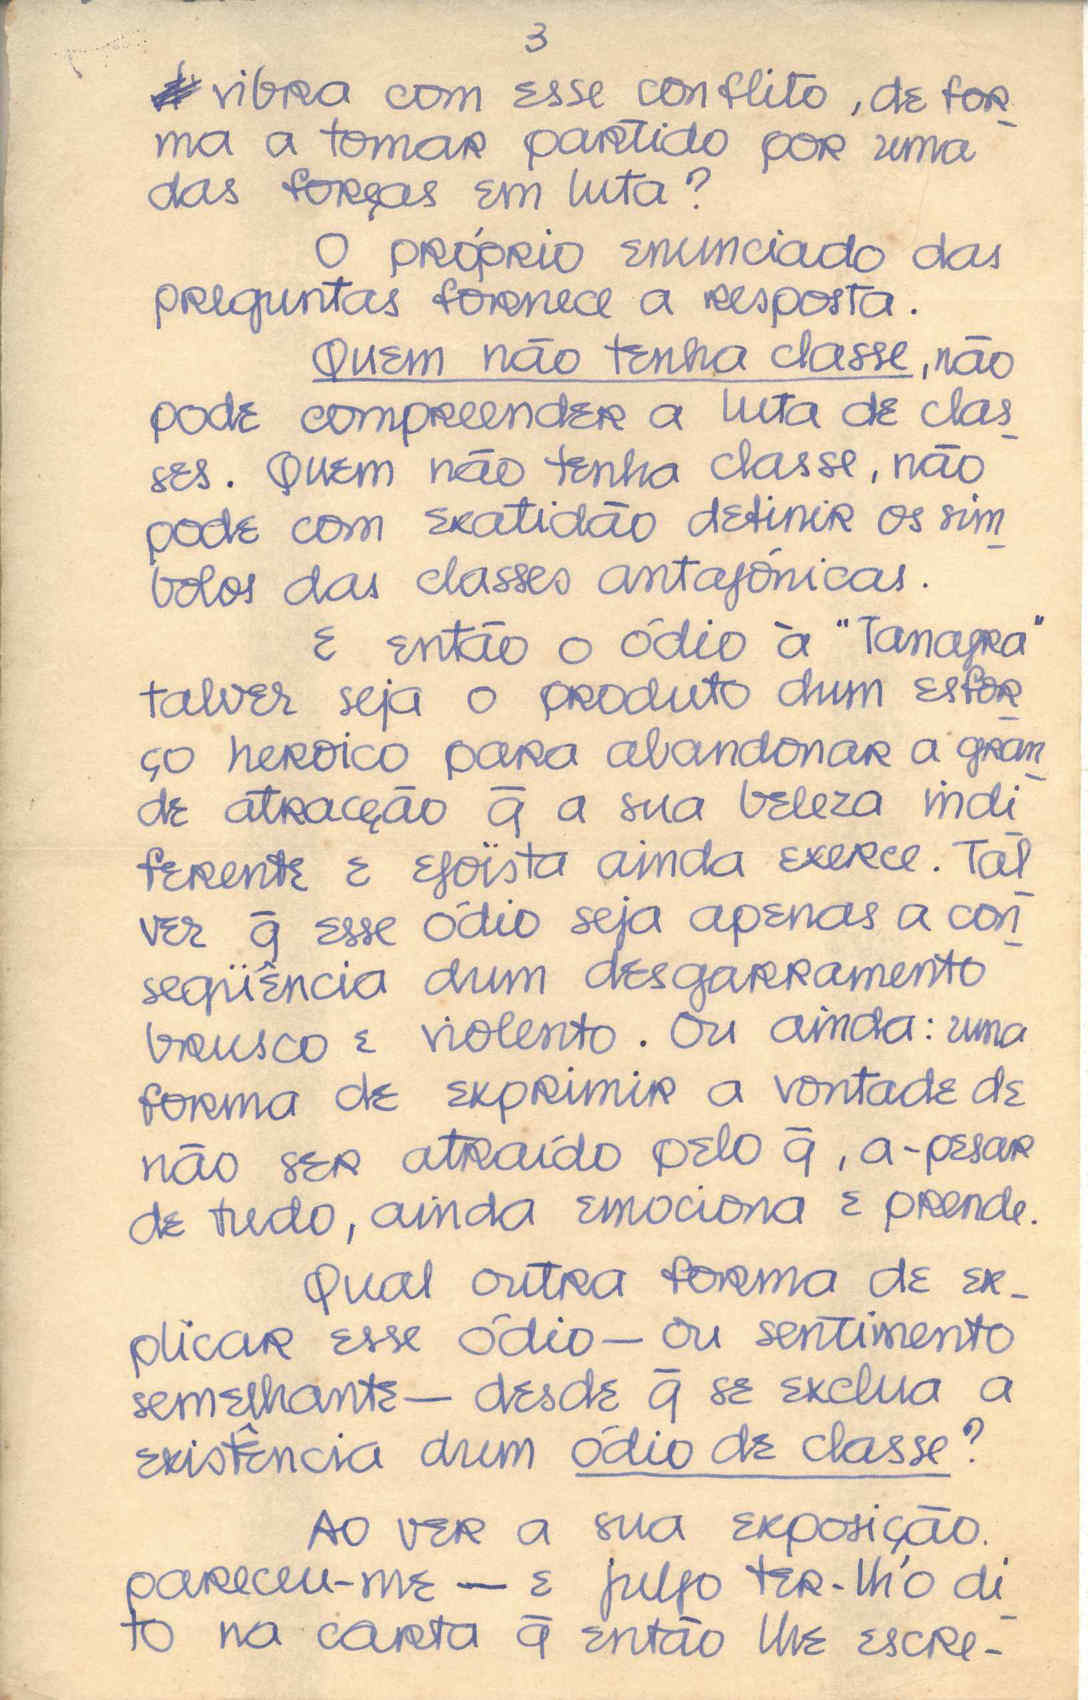 3
vibra com esse conflito, de for-
ma a tomar partido por uma
das forças em luta?
O próprio enunciado das
preguntas fornece a resposta.
Quem não tenha classe, não
pode compreender a luta de clas-
ses. Quem não tenha classe, não
pode com exatidão definir os sím-
bolos das classes antagónicas.
E então o ódio à "Tanagra"
talvez seja o produto dum esfor-
ço heroico para abandonar a gran-
de atracção q̄ a sua beleza indi-
ferente e egoïsta ainda exerce. Tal-
vez q̄ esse ódio seja apenas a con-
seqüência dum desgarramento
brusco e violento. Ou ainda: uma
forma de exprimir a vontade de
não ser atraído pelo q̄, a-pesar
de tudo, ainda emociona e prende.
Qual outra forma de ex-
plicar esse ódio — ou sentimento
semelhante — desde q̄ se exclua a
existência dum ódio de classe?
Ao ver a sua exposição.
pareceu-me — e julgo ter-lh'o di-
to na carta q̄ então lhe escre-